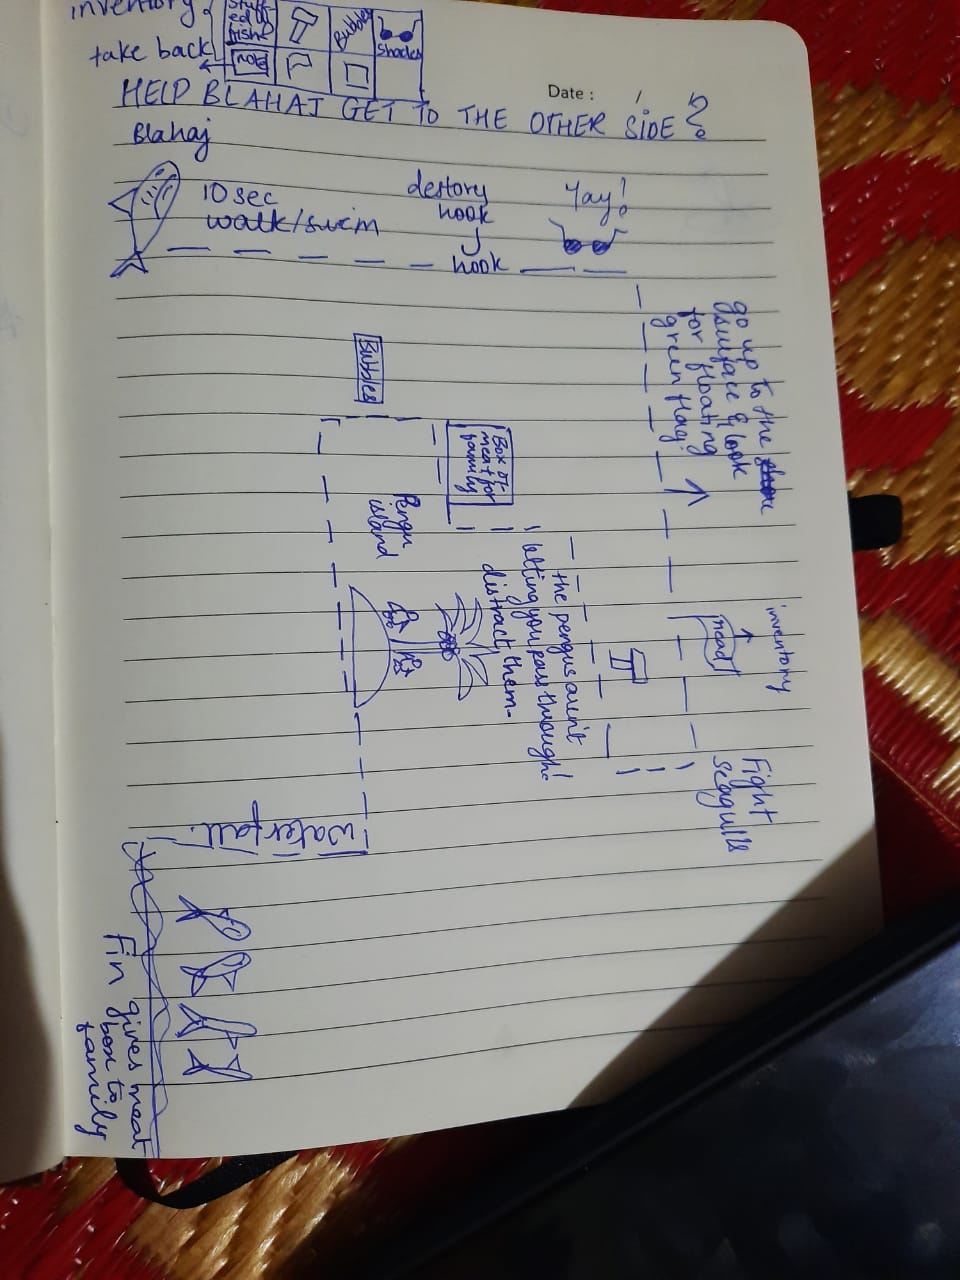 inventory
stuff
ed
fishe
Bubble
shades
take back
Date :
HELP BLAHAJ GET TO THE OTHER SIDE?
Blahaj
10 sec
walk/swim
destory
hook
Yay!
hook
go up to the
surface & look
for floating
green flag!
Bubbles
Box of
meat for
family
Pengu
island
the pengus aren't
letting you pass through!
distract them.
inventory
head
Fight
seagulls
Waterfall!
Fin gives meat
box to
family